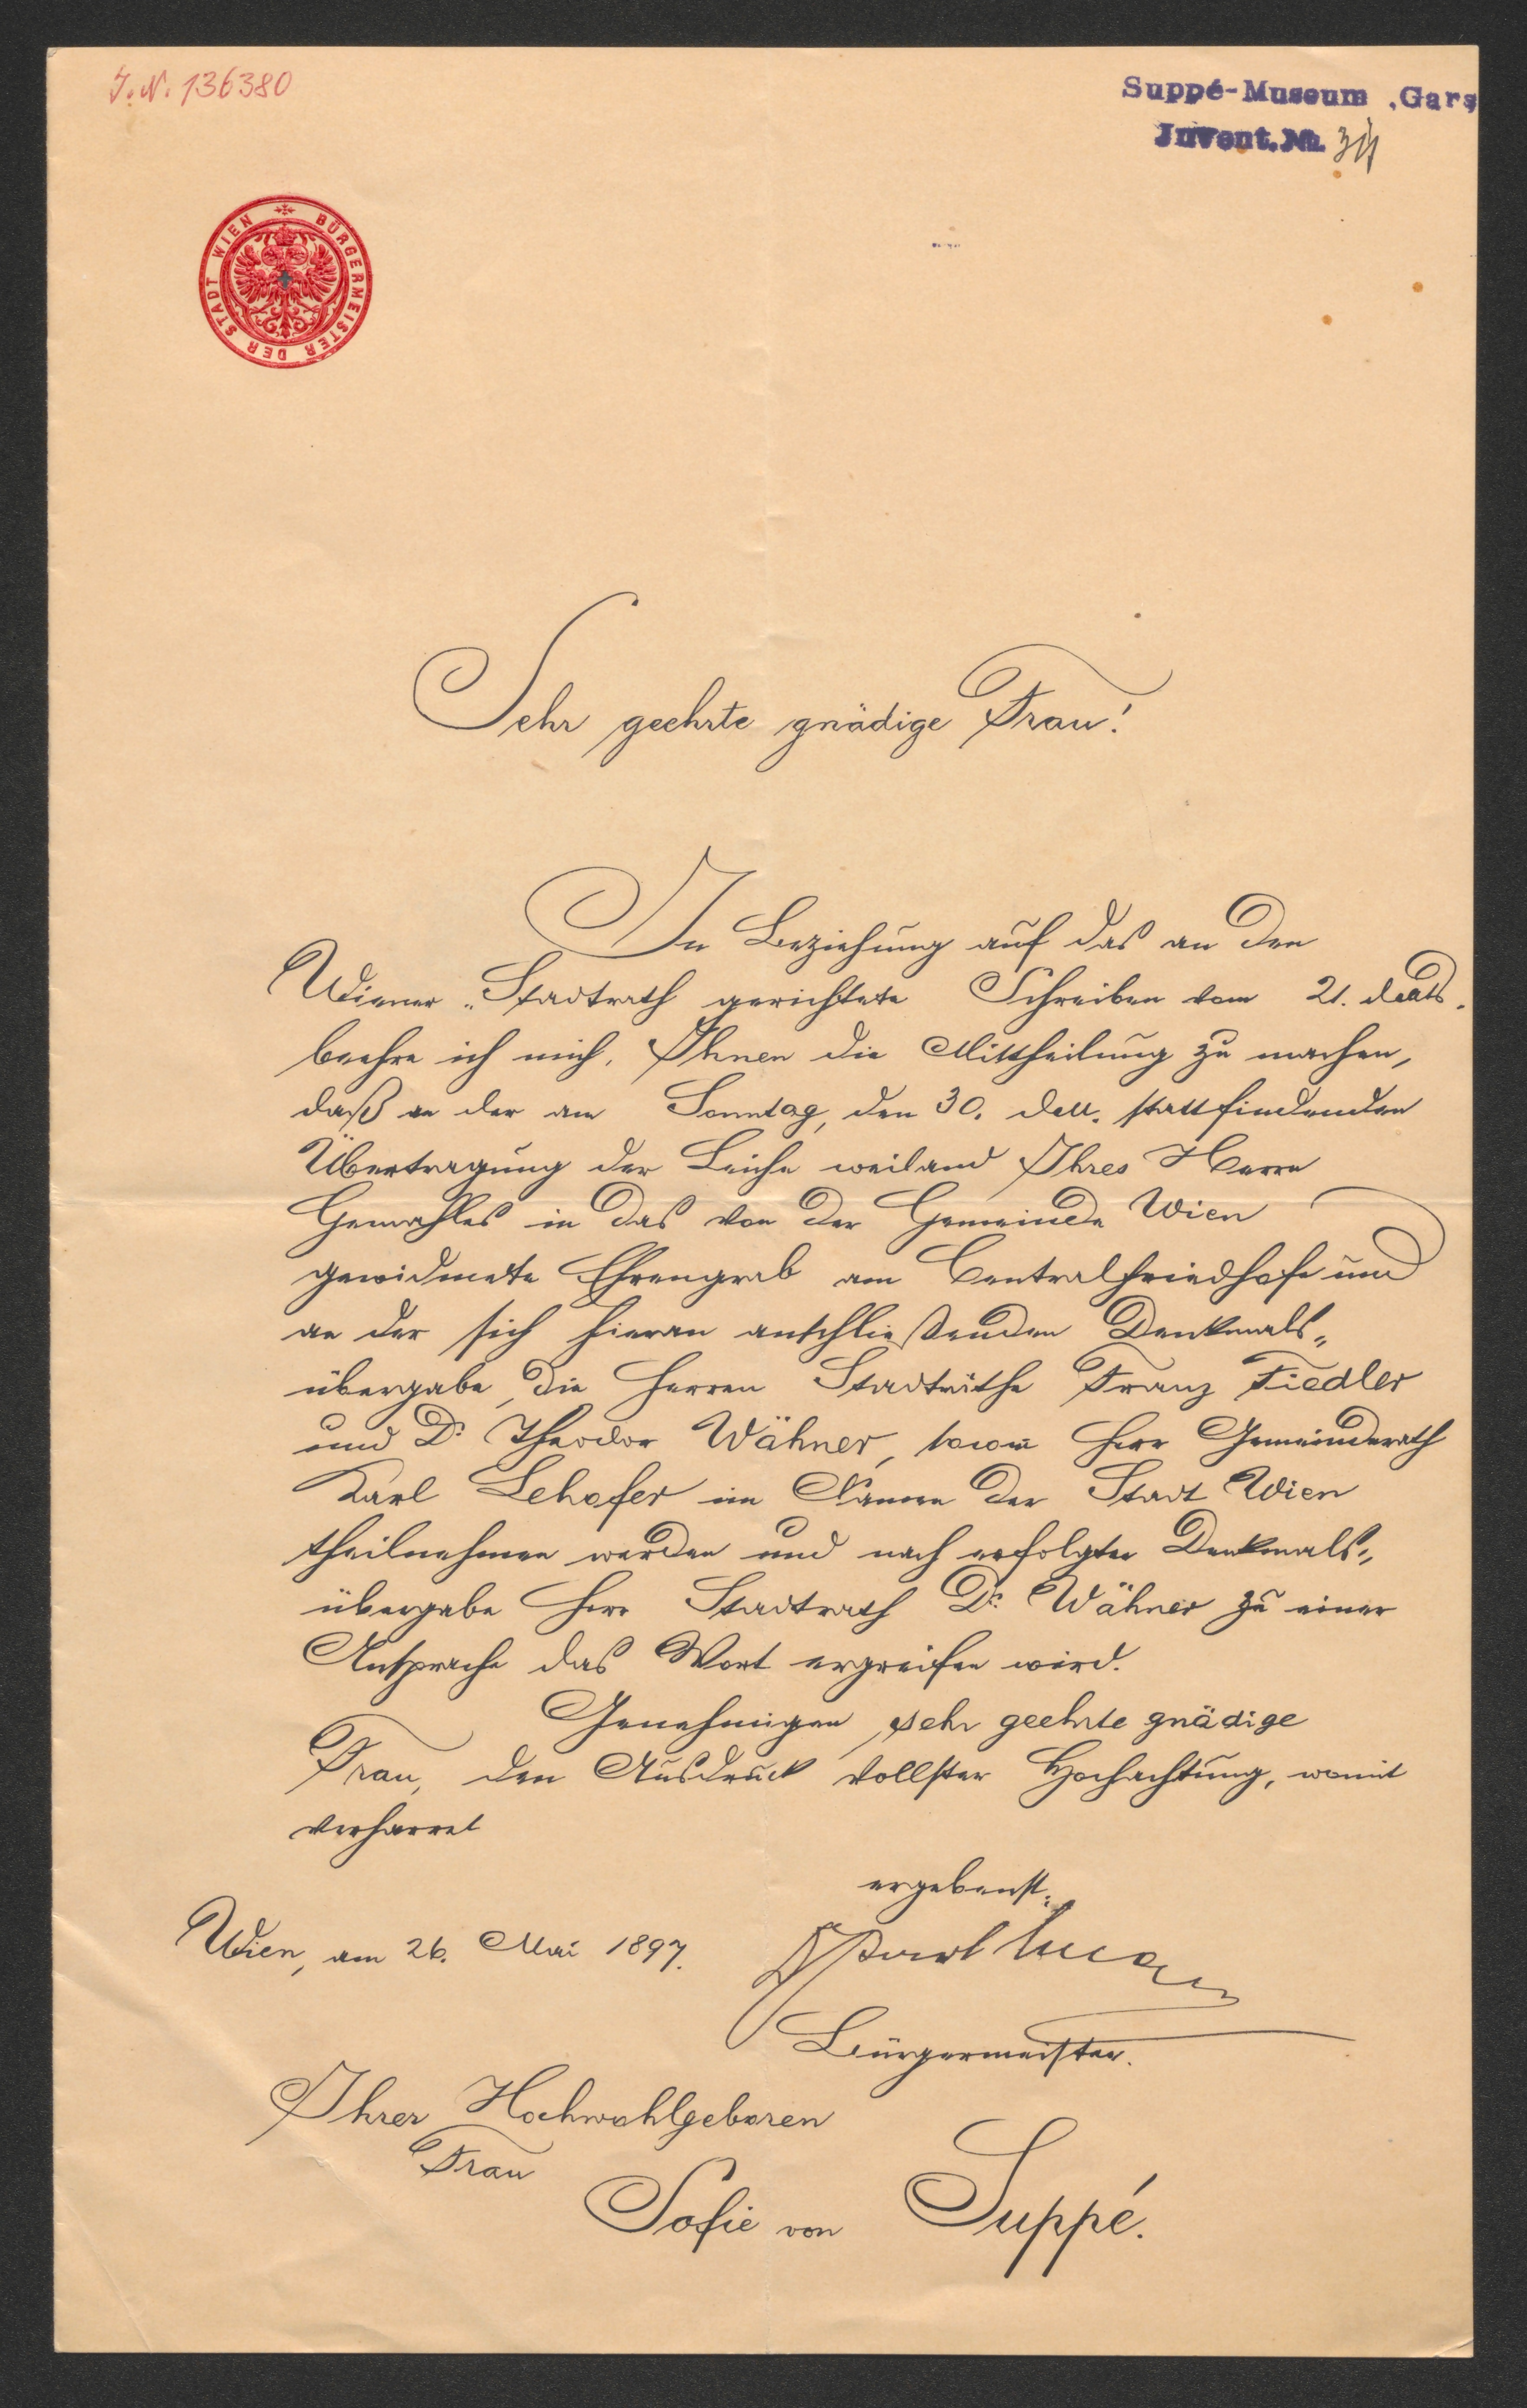 J.N. 136380
Suppé-Museum, Gars
Invent. No.
BÜRGERMEISTER DER STADT WIEN
Sehr geehrte gnädige Frau!
In Beziehung auf das an den
Wiener Stadtrath gerichtete Schreiben vom 21. d. Mts.
beehre ich mich, Ihnen die Mittheilung zu machen,
daß an der am Sonntag, den 30. d. M. stattfindenden
Übertragung der Leiche weiland Ihres Herrn
Gemahles in das von der Gemeinde Wien
gewidmete Ehrengrab am Centralfriedhofe und
an der sich hieran anschließenden Denkmals-
übergabe, die Herren Stadträthe Franz Fiedler
und Dr. Theodor Wähner, sowie Herr Gemeinderath
Karl Lehofer im Namen der Stadt Wien
theilnehmen werden und nach erfolgter Denkmals-
übergabe Herr Stadtrath Dr. Wähner zu einer
Ansprache das Wort ergreifen wird.
Genehmigen, sehr geehrte gnädige
Frau, den Ausdruck vollster Hochachtung, womit
verharret
ergebenst:
Wien, am 26. Mai 1897.
Bürgermeister.
Ihrer Hochwohlgeboren
Frau
Sofie von Suppé.